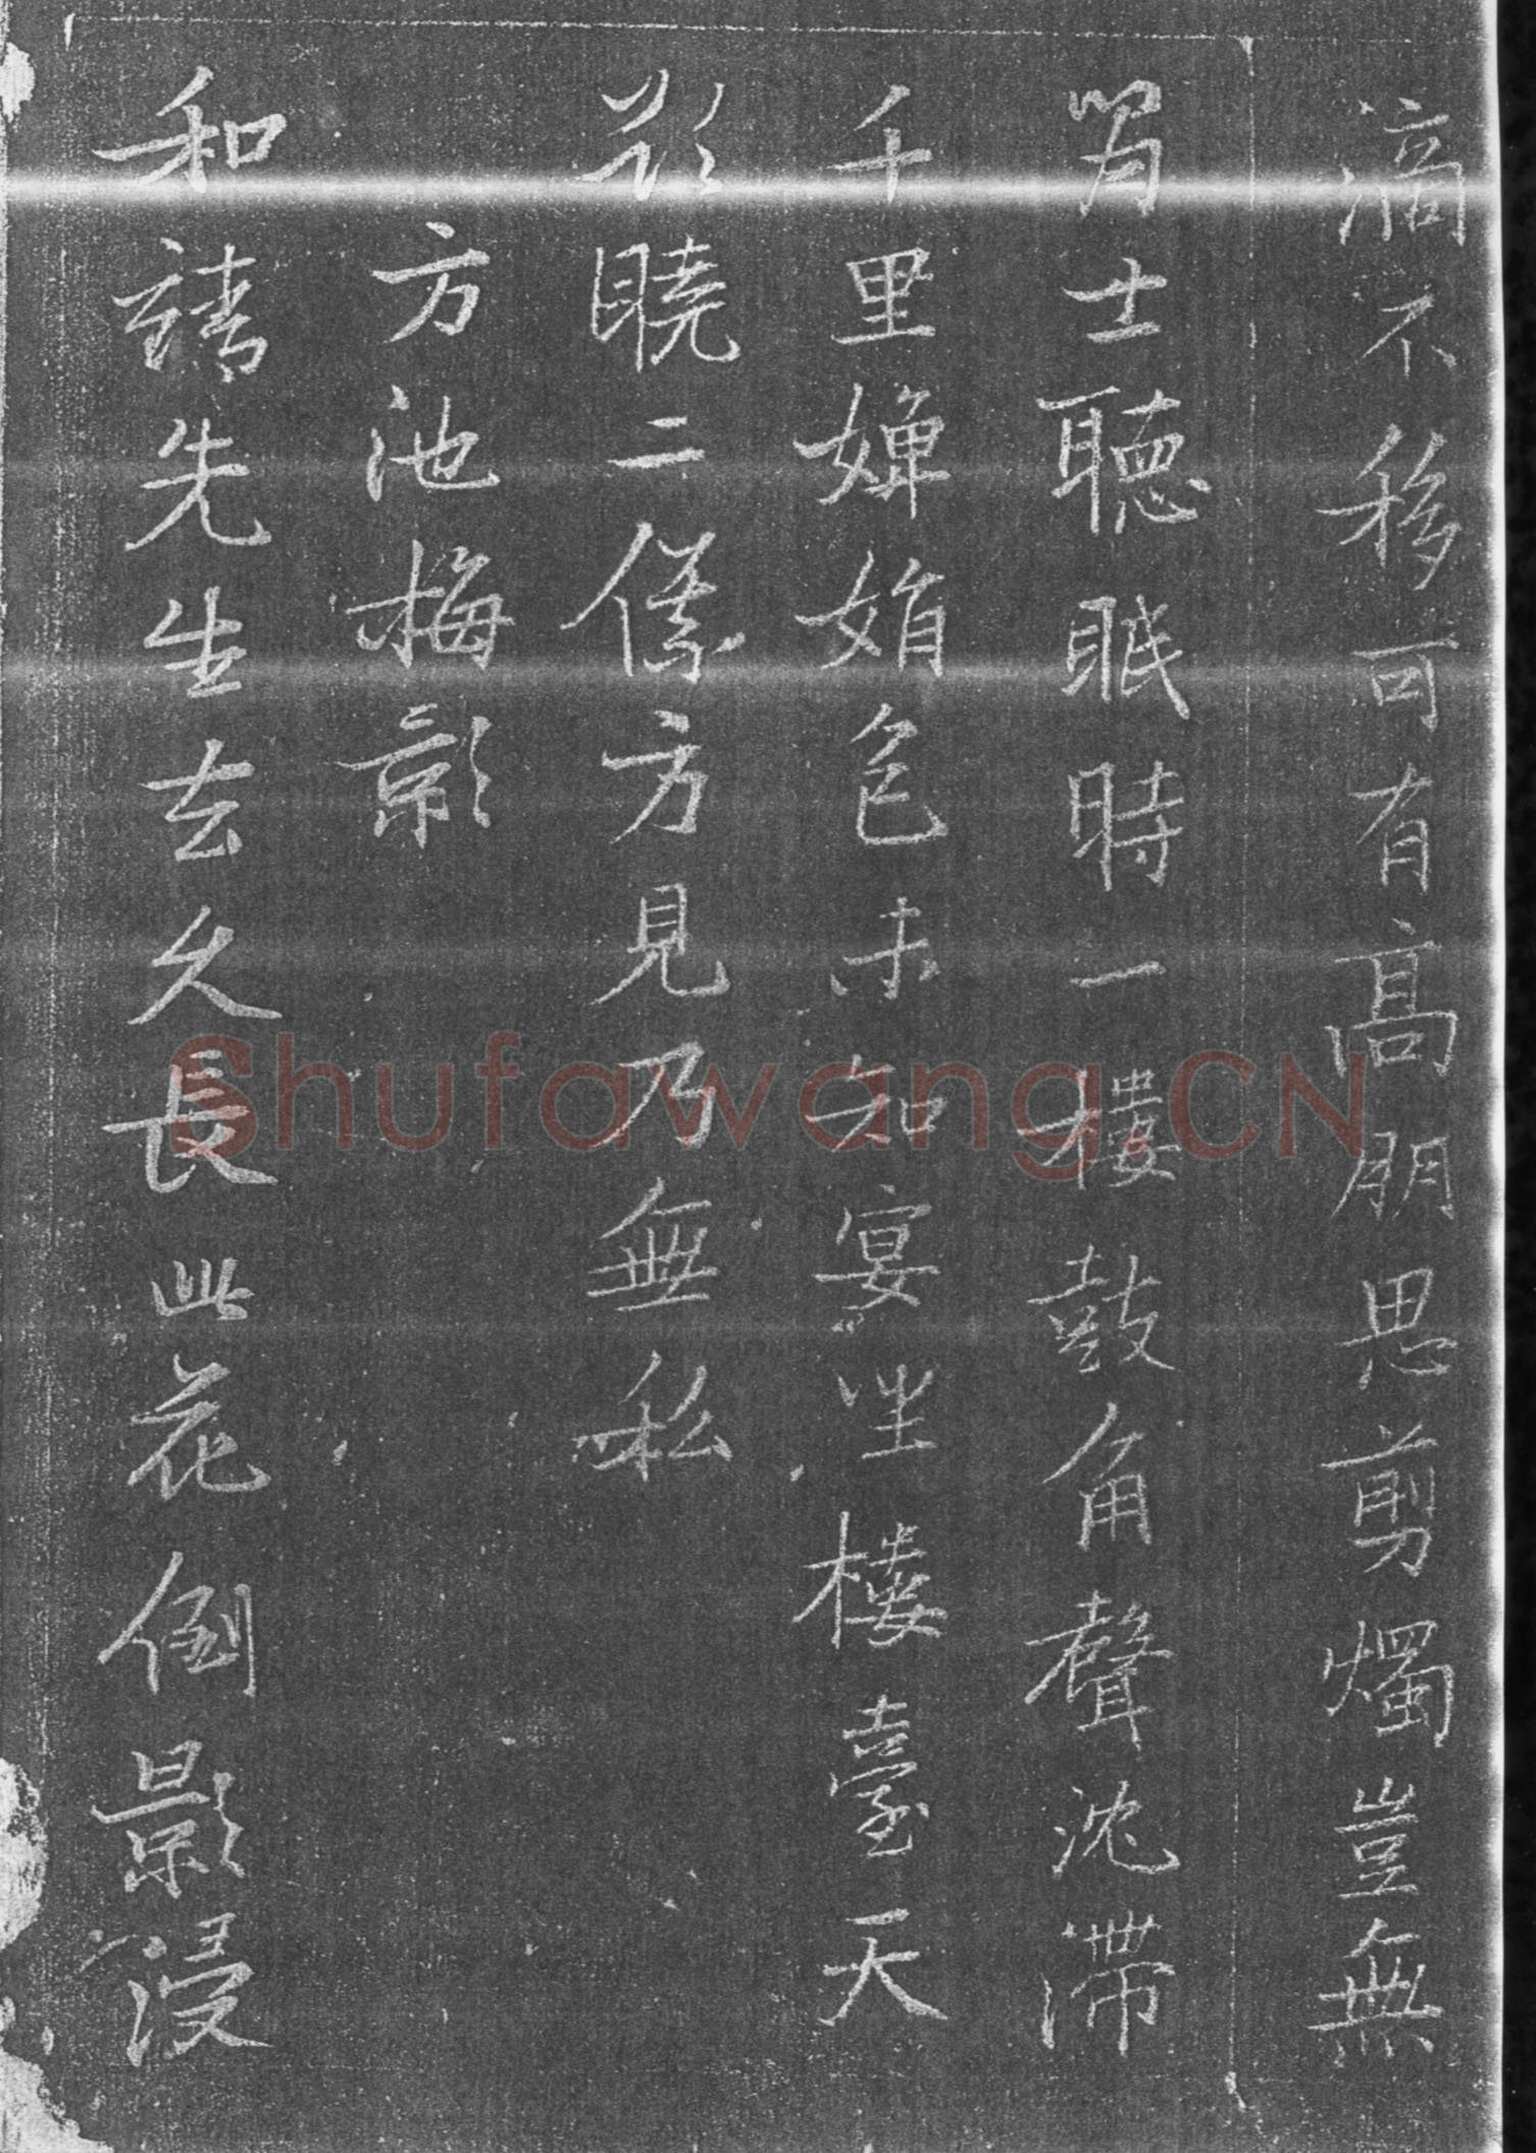 滴不移可有高朋思剪燭豈無
胃士聽眠時一樓鼓角聲沈滯
千里嬋娟色未知宴坐樓臺天
欲曉二傒方見乃無私
方池梅影
和靖先生去久長此花倒影浸
Shufawang.CN